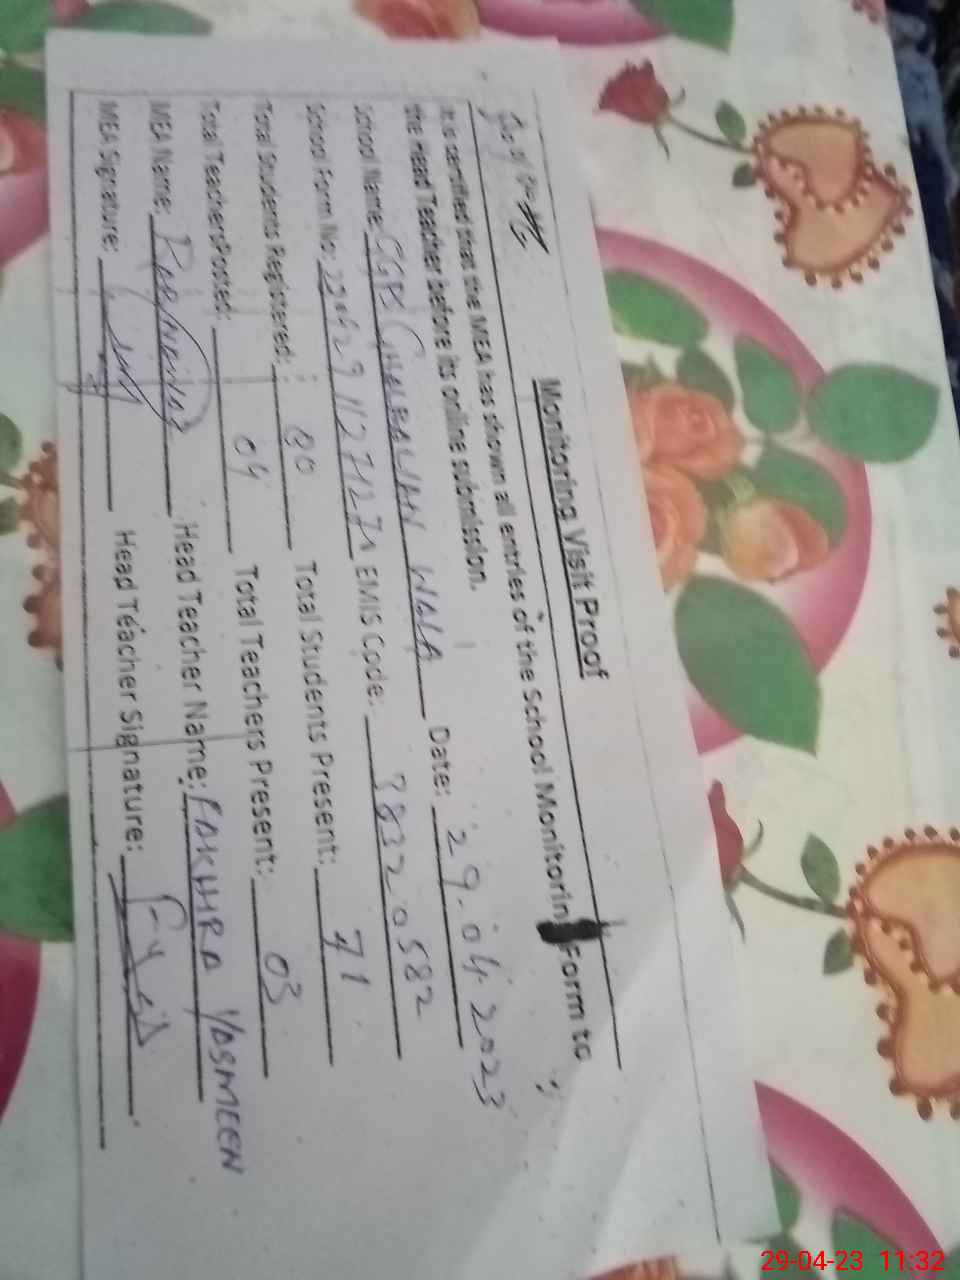 Monitoring Visit Proof
It is certified that the MEA has shown all entries of the School Monitoring Form to
the Head Teacher before its online submission.
School Name: GGPS WALA Date: 29.04.2023
School Form No: EMIS Code: 38320582
Total Students Registered: 80 Total Students Present: 71
Total Teachers Posted: 04 Total Teachers Present: 03
MEA Name: Head Teacher Name: FAKHRA YASMEEN
MEA Signature: Head Teacher Signature:
29-04-23 11:32